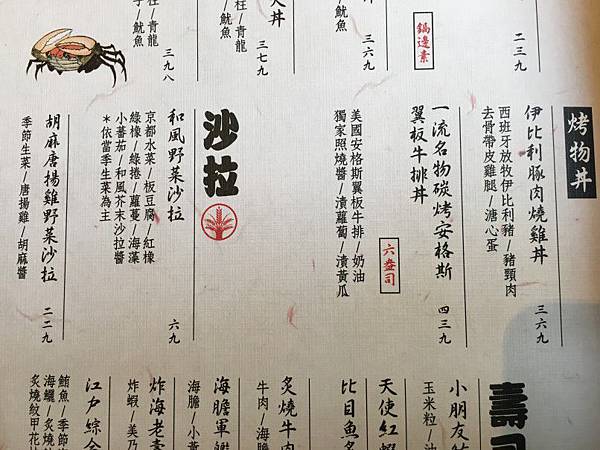 二三九
鍋邊素
三六九
/魷魚
丼
三七九
柱/青龍
/魷魚
三九八
柱/青龍
子/魷魚
烤物丼
伊比利豚肉燒雞丼
三六九
西班牙放牧伊比利豬/豬頸肉
去骨帶皮雞腿/溏心蛋
一流名物碳烤安格斯
翼板牛排丼
四三九
六盎司
美國安格斯翼板牛排/奶油
獨家照燒醬/漬蘿蔔/漬黃瓜
沙拉
和風野菜沙拉
六九
京都水菜/板豆腐/紅橡
綠橡/綠捲/蘿蔓/海藻
小蕃茄/和風芥末沙拉醬
*依當季生菜為主
胡麻唐揚雞野菜沙拉
二二九
季節生菜/唐揚雞/胡麻醬
壽司
小朋友
玉米粒/
天使紅蝦
比目魚
炙燒牛肉
牛肉/海膽
海膽軍艦
海膽/小黃
炸海老
炸蝦/美乃
江戶綜合
鮪魚/季節
海鱺/炙燒
炙燒紋甲花